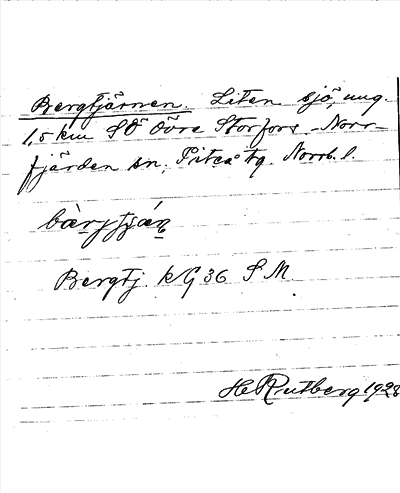 Bergtjärnen. Liten sjö, ung.
1,5 km SÖ Övre Storfors. - Norr-
fjärden sn, Piteå tg. Norrb. l.
bàrjtjáṇ
Bergtj. kG 36 S M.
H Rutberg 1928